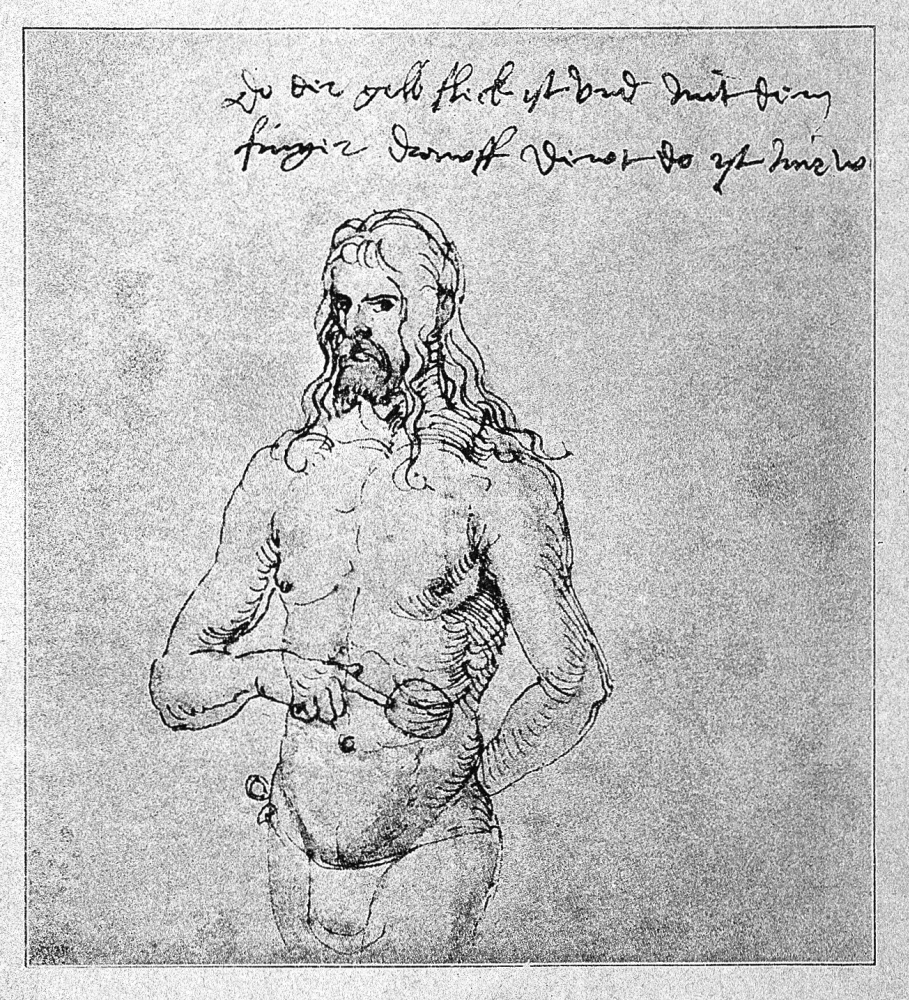 Do der gelb fleck ist vnd mit dem
finger drawff dewt do ist mir w